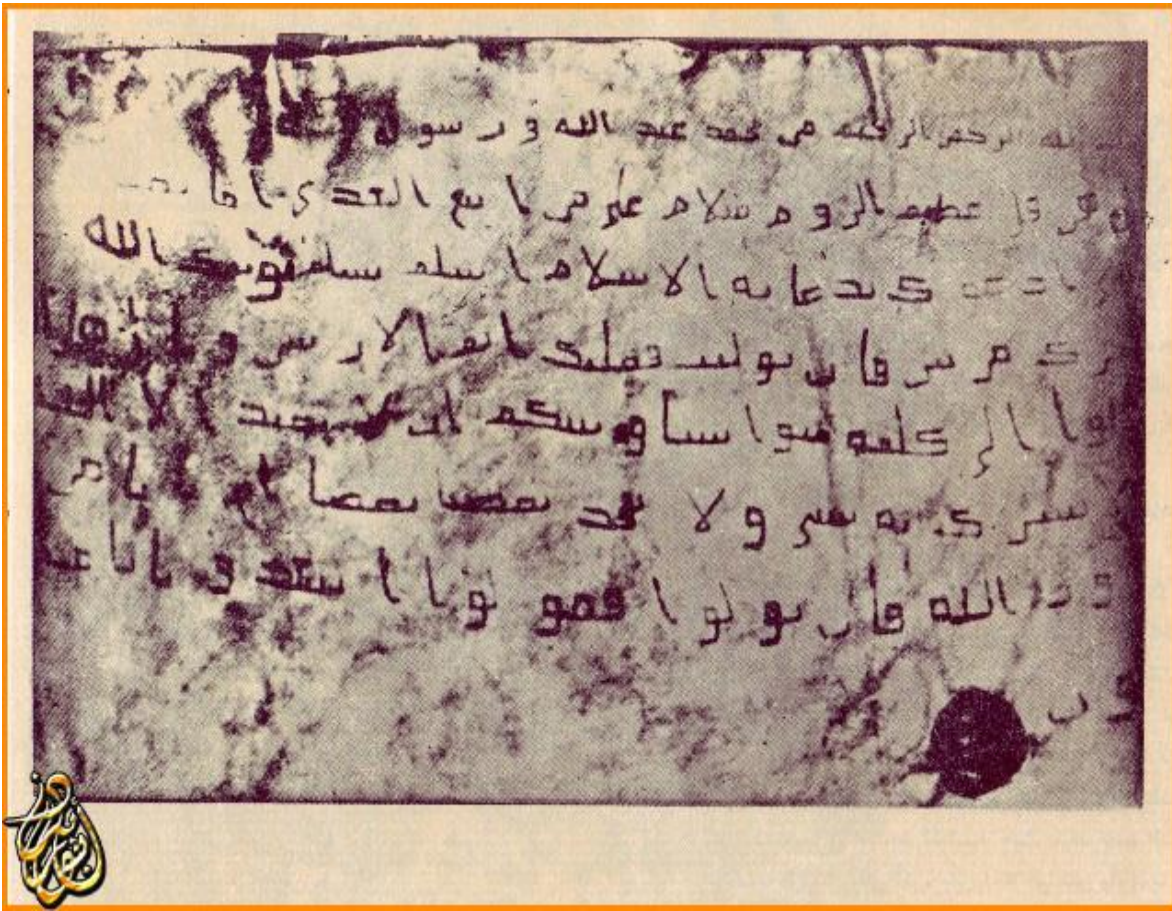 الله الرحمن الرحيم من محمد عبد الله و رسوله
هرقل عظيم الروم سلام على من اتبع الهدى اما بعد
ادعوك بدعاية الاسلام اسلم تسلم يوتك الله
مرتين فان توليت فعليك اثم و يا اهل
الى كلمة سوا بيننا وبينكم نعبد الا الله
نشرك به شي و لا يتخذ بعضنا بعضا من
دون الله فان تولوا فقولوا اشهدوا بانا
ون